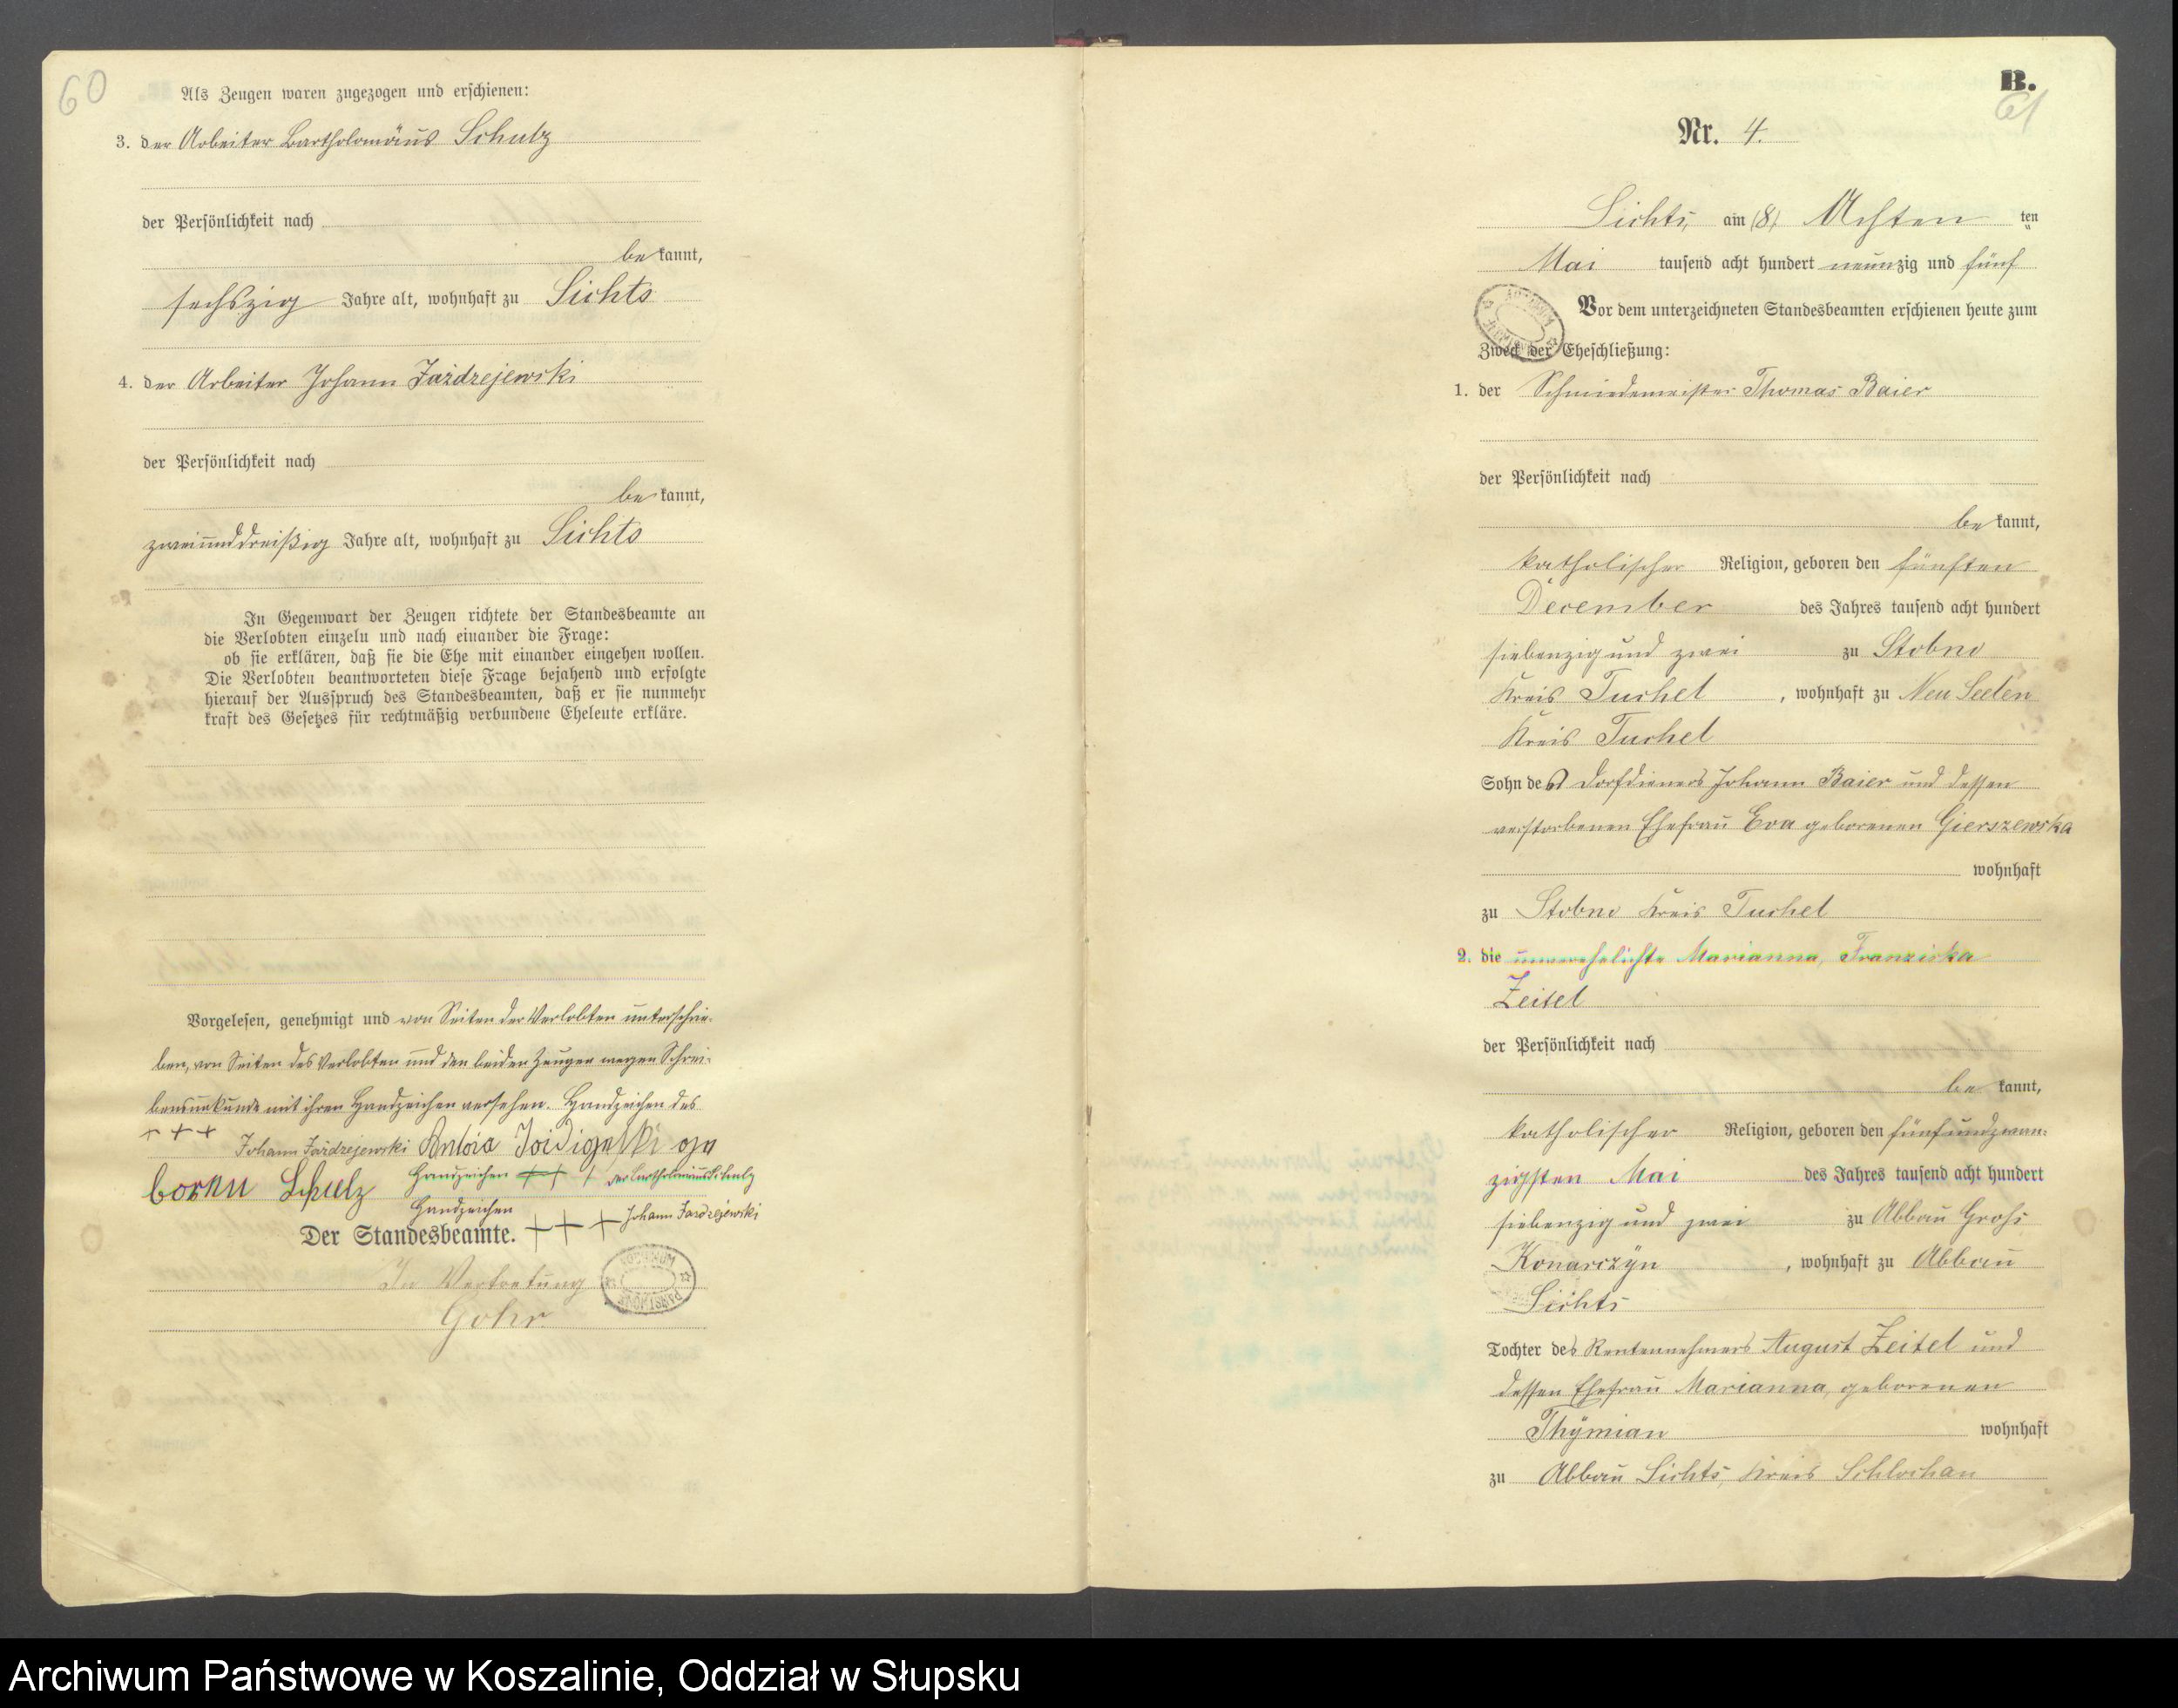 60
Als Zeugen waren zugezogen und erschienen:
3. der Arbeiter Bartholomäus Schulz
der Persönlichkeit nach
be kannt,
sechszig Jahre alt, wohnhaft zu Lichts
4. der Arbeiter Johann Jażdzejewski
der Persönlichkeit nach
be kannt,
zweiunddreißig Jahre alt, wohnhaft zu Lichts
In Gegenwart der Zeugen richtete der Standesbeamte an
die Verlobten einzeln und nach einander die Frage:
ob sie erklären, daß sie die Ehe mit einander eingehen wollen.
Die Verlobten beantworteten diese Frage bejahend und erfolgte
hierauf der Ausspruch des Standesbeamten, daß er sie nunmehr
kraft des Gesetzes für rechtmäßig verbundene Eheleute erkläre.
Vorgelesen, genehmigt und von Seiten der Verlobten unterschrie-
ben, von Seiten des Verlobten und den beiden Zeugen wegen Schrei-
bensunkunde mit ihren Handzeichen versehen. Handzeichen des
+ + + Johann Jażdzejewski
bornu Schulz Handzeichen + + + des Bartholomäus Schulz
Handzeichen
Der Standesbeamte. + + + Johann Jazdzejewski
In Vertretung
Gohr
B.
61
Nr. 4.
Lichts, am (8) Achten ten
Mai tausend acht hundert neunzig und fünf
Vor dem unterzeichneten Standesbeamten erschienen heute zum
Zweck der Eheschließung:
1. der Schmiedemeister Thomas Baier
der Persönlichkeit nach
be kannt,
katholischer Religion, geboren den fünften
December des Jahres tausend acht hundert
siebenzig und zwei zu Stobno
Kreis Tuchel, wohnhaft zu Neu Seelen
Kreis Tuchel
Sohn des Dorfdieners Johann Baier und dessen
verstorbenen Ehefrau Eva geborenen Gierszewska
wohnhaft
zu Stobno Kreis Tuchel
2. die unverehelichte Marianna, Franziska
Zeitel
der Persönlichkeit nach
be kannt,
katholischer Religion, geboren den fünfundzwan-
zigsten Mai des Jahres tausend acht hundert
siebenzig und zwei zu Abbau Groß
Konarczyn, wohnhaft zu Abbau
Lichts
Tochter des Rentennehmers August Zeitel und
dessen Ehefrau Marianna, geborenen
Thymian wohnhaft
zu Abbau Lichts, Kreis Schlochau
Archiwum Państwowe w Koszalinie, Oddział w Słupsku